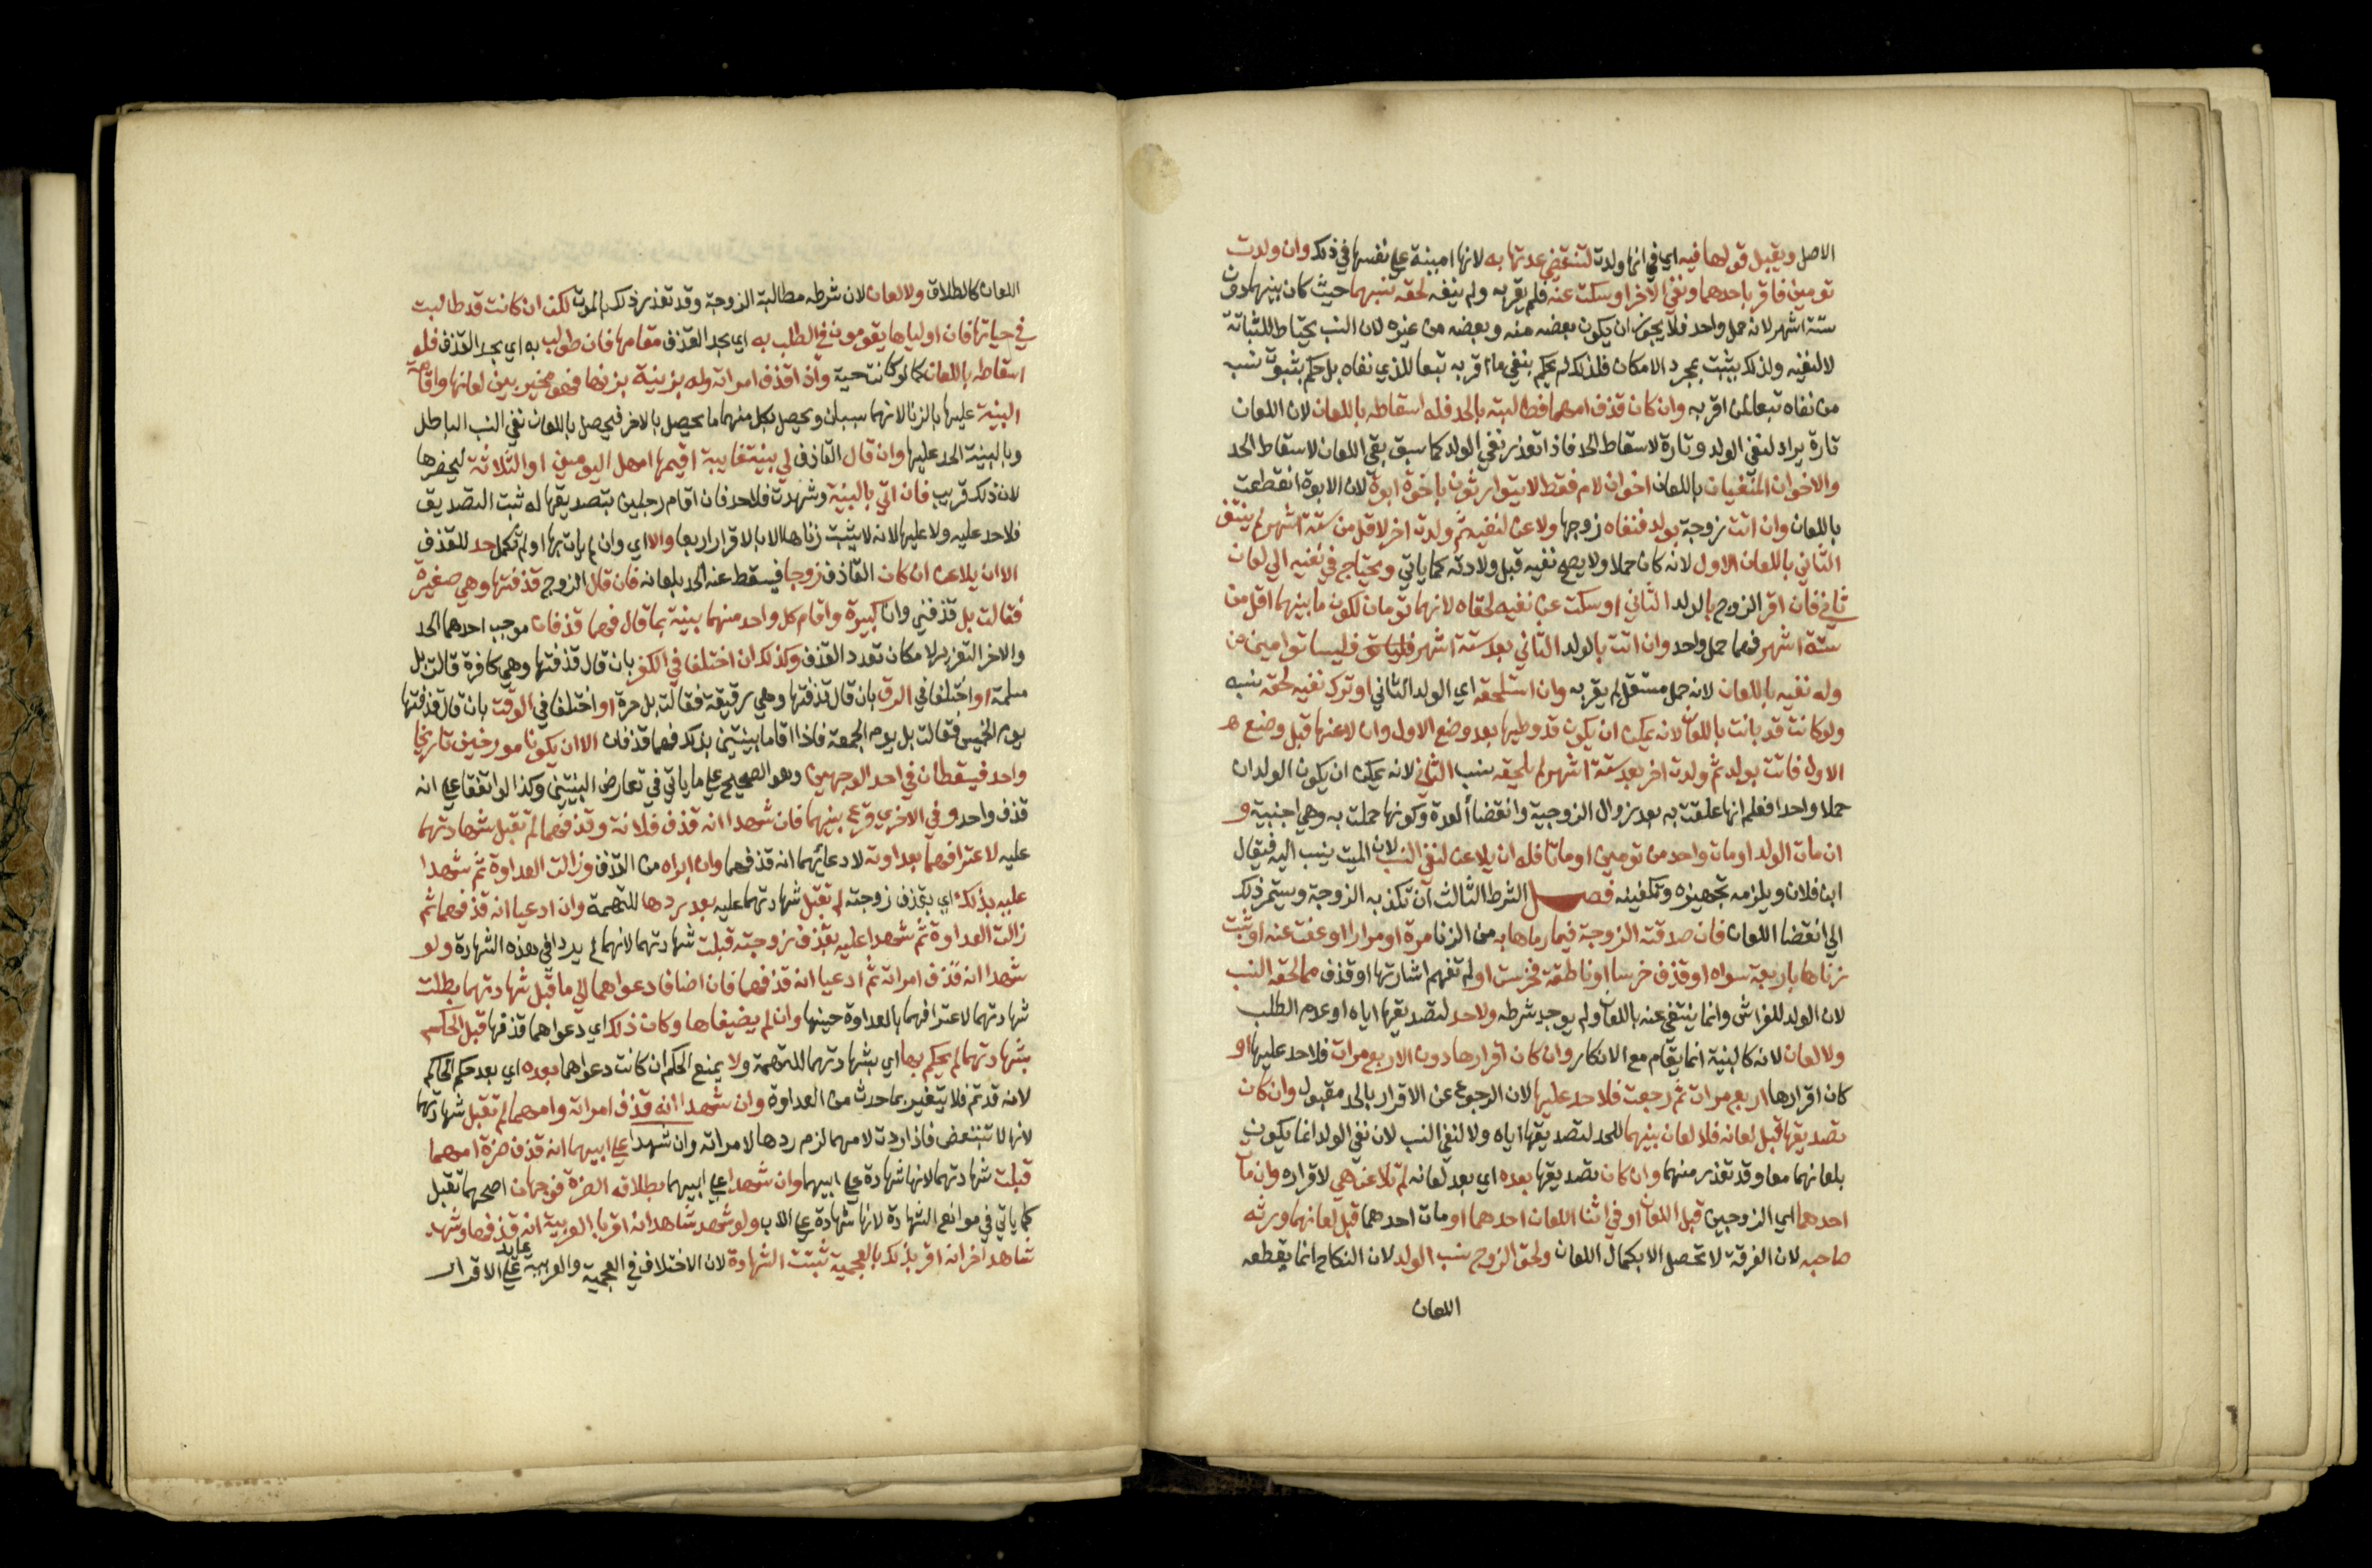 الاصل ويقبل قولها فيه اي في انها ولدت لتنقضي عدتها به لانها امينة علي نفسها في ذلك وان ولدت
تومين فاقر باحدهما ونفي الاخر او سكت عنه فلم يقر به ولم ينفه لحقه نسبهما حيث كان بينهما دون
ستة اشهر لانه حمل واحد فلا يجوز ان يكون بعضه منه وبعضه من غيره لان النسب يحتاط للثباته
لا لنفيه ولذلك يثبت بمجرد الامكان فلذلك لم يحكم بنفي ما اقر به تبعا للذي نفاه بل حكم بثبوت نسب
من نفاه تبعا لمن اقر به وان كان قذف امهما فطالبته بالحد فله اسقاطه باللعان لان اللعان
تارة يراد لنفي الولد وتارة لاسقاط الحد فاذا تعذر نفي الولد كما سبق بقي اللعان لاسقاط الحد
والاخوان المنفيان باللعان اخوان لام فقط لا يتوارثون باخوة ابوة لان الابوة انقطعت
باللعان وان اتت زوجة بولد فنفاه زوجها ولاعن لنفيه ثم ولدت اخر لاقل من ستة اشهر لم ينتف
الثاني باللعان الاول لانه كان حملا ولا يصح نفيه قبل ولادته كما ياتي ويحتاج في نفيه الي لعان
ثاني فان اقر الزوج بالولد الثاني او سكت عن نفيه لحقاه لانهما تومان لكون ما بينهما اقل من
ستة اشهر فهما حمل واحد وان اتت بالولد الثاني بعد ستة اشهر فليسا توامين
وله نفيه باللعان لانه حمل مستقل لم يقر به وان استلحقه اي الولد الثاني او ترك نفيه لحقه نسبه
ولو كانت قد بانت باللعان لانه يمكن ان يكون قد وطيها بعد وضع الاول وان لاعنها قبل وضع
الاول فاتت بولد ثم ولدت اخر بعد ستة اشهر لم يلحقه نسب الثاني لانه يمكن ان يكون الولدان
حملا واحدا فعلم انها علقت به بعد زوال الزوجية وانقضا العدة وكونها حملت به وهي اجنبية و
ان مات الولد او مات واحد من تومين او ماتا فله ان يلاعن لنفي النسب لان الميت ينسب اليه فيقال
ابن فلان ويلزمه تجهيزه وتكفينه فصل الشرط الثالث ان تكذبه الزوجة ويستمر ذلك
الي انقضا اللعان فان صدقته الزوجة فيما رماها به من الزنا مرة او مرارا او عفت عنه او ثبت
زناها باربعة سواه او قذف خرسا او ناطقة فخرست او لم تفهم اشارتها او قذف مما لحقه النسب
لان الولد للفراش وانما ينتفي عنه باللعان ولم يوجد شرطه ولا حد لتصديقها اياه او عدم الطلب
ولا لعان لانه كالبينة انما يقام مع الانكار وان كان اقرارها دون الاربع مرات فلا حد عليها او
كان اقرارها اربع مرات ثم رجعت فلا حد عليها لان الرجوع عن الاقرار بالحد مقبول وان كان
تصديقها قبل لعانه فلا لعان بينهما للحد لتصديقها اياه ولا لنفي النسب لان نفي الولد انما يكون
بلعانهما معا وقد تعذر منهما وان كان تصديقها بعده اي بعد لعانه لم تلاعن هي لاقراره وان مات
احدهما اي الزوجين قبل اللعان او في اثنا اللعان احدهما او مات احدهما قبل لعانهما ورثه
صاحبه لان الفرقة لا تحصل الا بكمال اللعان ولحق الزوج نسب الولد لان النكاح انما يقطعه
اللعان
اللعان كالطلاق ولا لعان لان شرطه مطالبة الزوجة وقد تعذر ذلك بالموت لكن ان كانت قد طالبت
في حياتها فان اولياها يقومون في الطلب به اي بحد القذف مقامها فان طولب به اي بحد القذف فله
اسقاطه باللعان كما لو كانت حية وان اقذف امراته وله بزينة بزناها فهو مخير بين لعانها واقامة
البينة عليها بالزنا لانهما سببان ويحصل بكل منهما ما يحصل بالاخر فيحصل باللعان نفي النسب الباطل
وبالبينة الحد عليها وان قال القاذف لي بينة غايبة اقيمها امهل اليومين او الثلاثة ليحضرها
لان ذلك قريب فان اتي بالبينة وشهدت فلا حد فان اقام رجلين بتصديقها له ثبت التصديق
فلا حد عليه ولا عليها لانه لا يثبت زناها الا بالاقرار اربعا والا اي وان لم يات بها او لم تكمل حد للقذف
الا ان يلاعن ان كان القاذف زوجا فيسقط عنه الحد بلعانه فان قال الزوج قذفتها وهي صغيرة
فقالت بل قذفني وانا كبيرة واقام كل واحد منهما بينة بما قال فهما قذفان موجب احدهما الحد
والاخر التعزير لامكان تعدد القذف وكذلك ان اختلفا في الكفر بان قال قذفتها وهي كافرة قالت بل
مسلمة او اختلفا في الرق بان قال قذفتها وهي رقيقة فقالت بل حرة او اختلفا في الوقت بان قال قذفتها
يوم الخميس فقالت بل يوم الجمعة فاذا اقاما بينتين بذلك فهما قذفان الا ان يكونا مورخين تاريخا
واحد فيسقطان في احد الوجهين وهو الصحيح علي ما ياتي في تعارض البينتين وكذا لو اتفقا علي انه
قذف واحد وفي الاخري يقرع بينهما فان شهدا انه قذف فلانة وقذفهما لم تقبل شهادتهما
عليه لاعترافهما بعداوته لادعائهما انه قذفهما وان ابراه من القذف وزالت العداوة ثم شهدا
عليه بذلك اي بقذف زوجته لم تقبل شهادتهما عليه بعد ردها للتهمة وان ادعيا انه قذفهما ثم
زالت العداوة ثم شهدا عليه بقذف زوجته قبلت شهادتهما لانهما لم يردا في هذه الشهادة ولو
شهدا انه قذف امراته ثم ادعيا انه قذفهما فان اضافا دعواهما الي ما قبل شهادتهما بطلت
شهادتهما لاعترافهما بالعداوة حينها وان لم يضيفاها وكان ذلك اي دعواهما قذفها قبل الحكم
بشهادتهما لم يحكم بها اي بشهادتهما للتهمة ولا يمنع الحكم ان كانت دعواهما بعده اي بعد حكم الحاكم
لانه قد تم فلا يتغير بما حدث من العداوة وان شهدا انه قذف امراته وامهما لم تقبل شهادتهما
لانها لا تتبعض فاذا ردت لامهما لزم ردها لامراته وان شهدا علي ابيهما انه قذف ضرة امهما
قبلت شهادتهما لانها شهادة علي ابيهما وان شهدا علي ابيهما بطلاقه الضرة فوجهان اصحهما تقبل
كما ياتي في موانع الشهادة لانها شهادة علي الاب ولو شهد شاهد انه اقر بالعربية انه قذفها وشهد
شاهد اخر انه اقر بذلك بالعجمية ثبتت الشهادة لان الاختلاف في العجمية والعربية عايد علي الاقرار